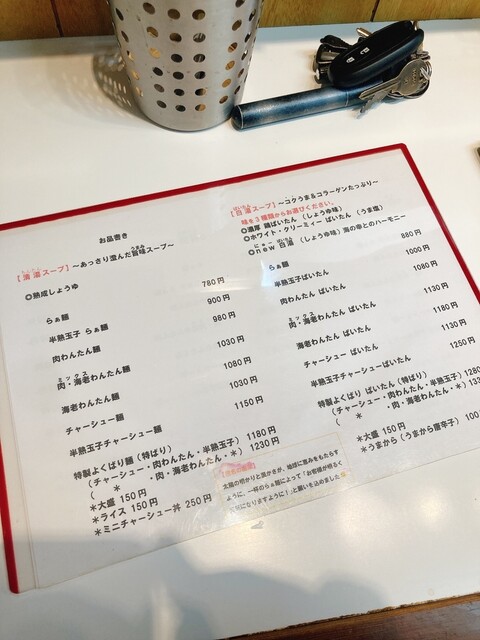 お品書き
【清湯スープ】～あっさり澄んだ旨味スープ～
◎熟成しょうゆ
らぁ麺 780円
半熟玉子 らぁ麺 900円
肉わんたん麺 980円
肉・海老わんたん麺 1030円
ミックス
海老わんたん麺 1080円
チャーシュー麺 1030円
半熟玉子チャーシュー麺 1150円
特製よくばり麺（特ばり）
（チャーシュー・肉わんたん・半熟玉子） 1180円
（ ＊ ・肉・海老わんたん・＊） 1230円
＊大盛 150円
＊ライス 150円
＊ミニチャーシュー丼 250円
【白湯スープ】～コクうま＆コラーゲンたっぷり～
味を3種類からお選びください。
◎濃厚 鶏ぱいたん （しょうゆ味）
◎ホワイト・クリーミィー ぱいたん （うま塩）
◎new 白湯 （しょうゆ味）海の幸とのハーモニー
らぁ麺 880円
半熟玉子ぱいたん 1000円
肉わんたん ぱいたん 1080円
ミックス
肉・海老わんたん ぱいたん 1130円
海老わんたん ぱいたん 1180円
チャーシュー ぱいたん 1130円
半熟玉子チャーシューぱいたん 1250円
特製よくばり ぱいたん（特ばり）
（チャーシュー・肉わんたん・半熟玉子） 1280
（ ＊ ・肉・海老わんたん・＊） 133
＊大盛 150円
＊うまから（うまから唐辛子） 100
太陽の明かりと温かさが、地球に恵みをもたらす
ように、一杯のらぁ麺によって「お客様が明るく
元気になりますように！」と願いを込めました